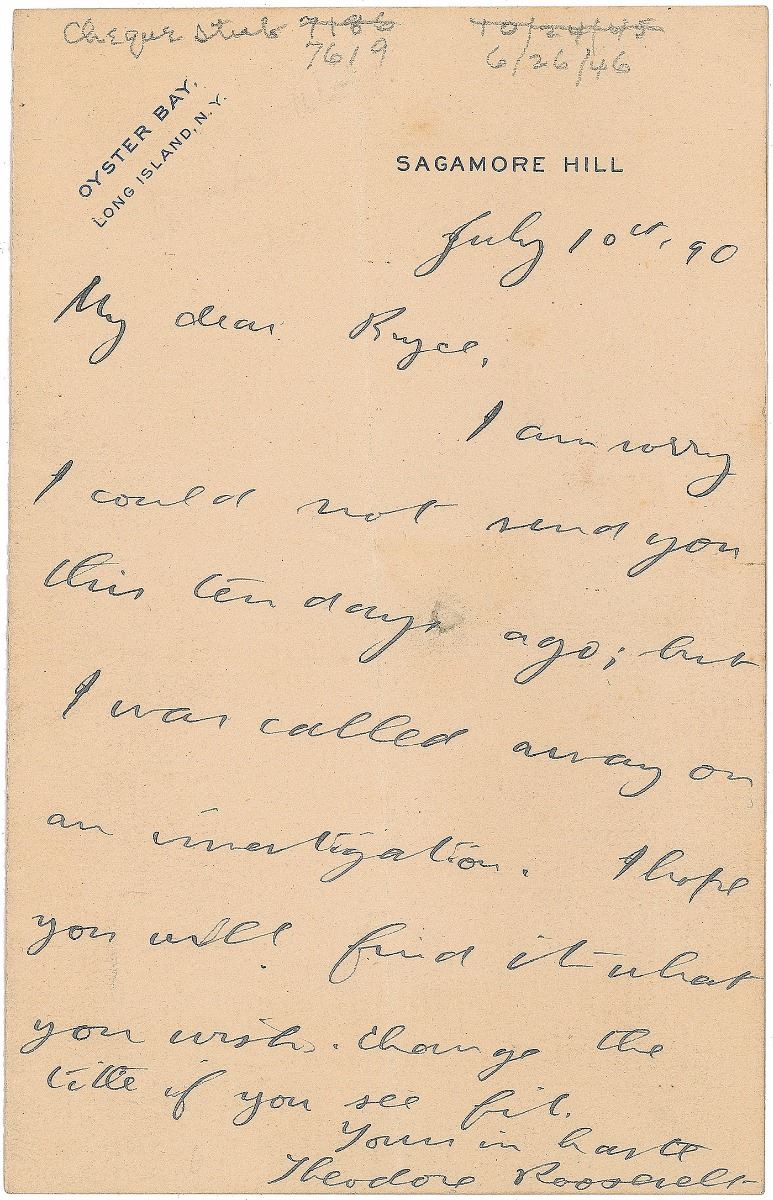 Cheque Stub 7186 10/24/45
7619 6/26/46
OYSTER BAY,
LONG ISLAND, N.Y.
SAGAMORE HILL
July 10th, 90
My dear Bryce,
I am sorry
I could not send you
this ten days ago; but
I was called away on
an investigation. I hope
you will find it what
you wish. Change the
title if you see fit.
Yours in haste
Theodore Roosevelt